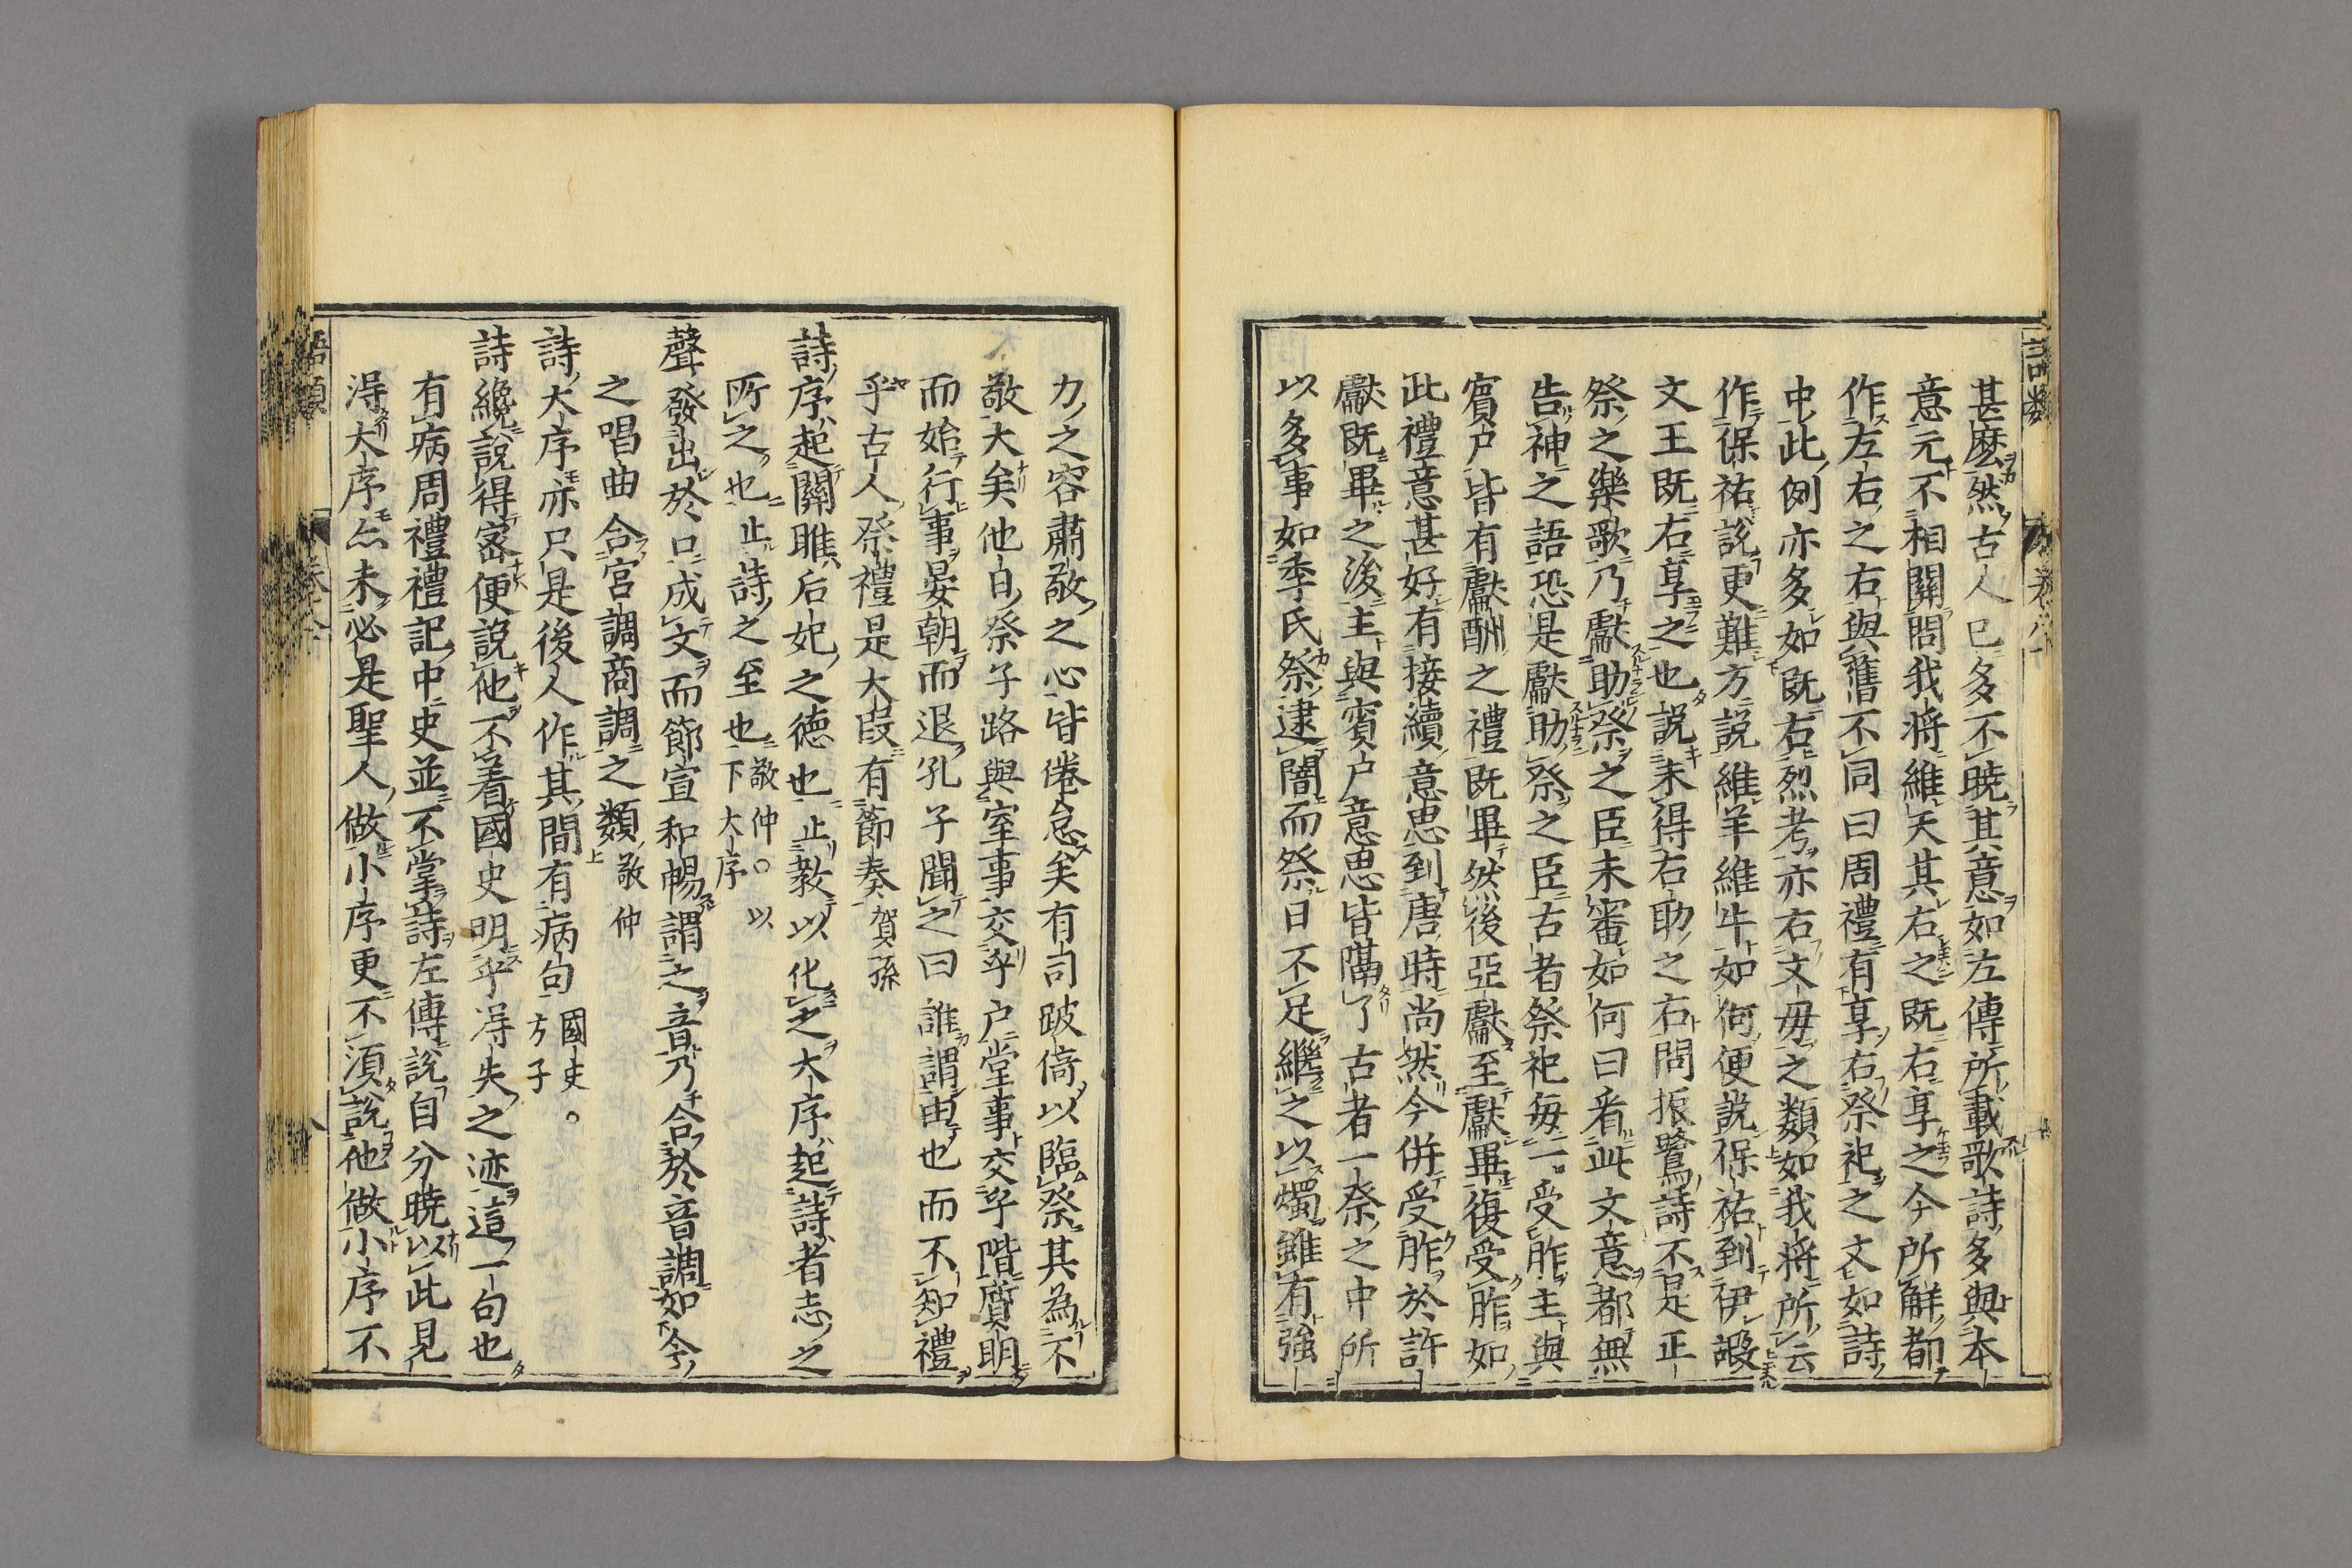 甚麽然古人已多不曉其意如左傳所載歌詩多與本
意元不相關問我將維天其右之既右享之今所解都
作左右之右與舊不同曰周禮有享右祭祀之文如詩
中此例亦多如既右烈考亦右文毋之類如我將所云
作保祐說更難方說維羊維牛如何便說保祐到伊嘏
文王既右享之也說未得右助之右問振鷺詩不是正
祭之樂歌乃獻助祭之臣未審如何曰看此文意都無
告神之語恐是獻助祭之臣古者祭祀每一受胙主與
賓尸皆有獻酬之禮既畢然後亞獻至獻畢復受胙如
此禮意甚好有接續意思到唐時尚然今併受胙於
獻既畢之後主與賓尸意思皆隔了古者一祭之中所
以多事如季氏祭逮闇而祭日不足繼之以燭雖有強
力之容肅敬之心皆倦怠矣有司跛倚以臨祭其為不
敬大矣他日祭子路與室事交乎户堂事交乎階質明
而始行事晏朝而退孔子聞之曰誰謂由也而不知禮
乎古人祭禮是大段有節奏賀孫
詩序起關雎后妃之德也止教以化之大序起詩者志之
所之也止詩之至也敬仲○以下大序
聲發出於口成文而節宣和暢謂之音乃合於音調如今
之唱曲合宮調商調之類敬仲
詩大序亦只是後人作其間有病句國史○方子
詩纔說得密便說他不着國史明乎得失之迹這一句也
有病周禮禮記中史並不掌詩左傳說自分曉以此見
得大序亦未必是聖人做小序更不須說他做小序不
語類 卷八十